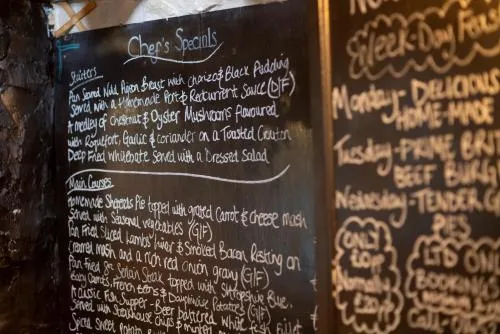 Chef's Specials
Starters
Pan Seared Wild Pigeon Breast with Chorizo & Black Pudding
Served with a Homemade Port & Redcurrent Sauce (D/F)
A medley of Chestnut & Oyster Mushrooms flavoured
with Roquefort, Garlic & coriander on a Toasted Crouton
Deep Fried Whitebate Served with a Dressed Salad
Main Courses
Homemade Shepherds Pie topped with grated Carrot & cheese mash
Served with Seasonal vegetables (G/F)
Pan Fried Sliced Lambs' liver & Smoked Bacon Resting on
Creamed mash and a rich red Onion gravy (G/F)
Pan Fried 8oz Sirloin Steak topped with Shropshire Blue.
Baby Carrots, French Beans & Dauphinoise Potatoes (G/F)
A Classic Fish Supper - Beer battered White Fish Fillet
Served with Steakhouse chips &
Spiced Sweet Potato
Week-Day
Monday - DELICIOUS
HOME-MADE
Tuesday - PRIME
BEEF
Wednesday - TENDER
PIES
ONLY
Normally
LTD ON
BOOKING